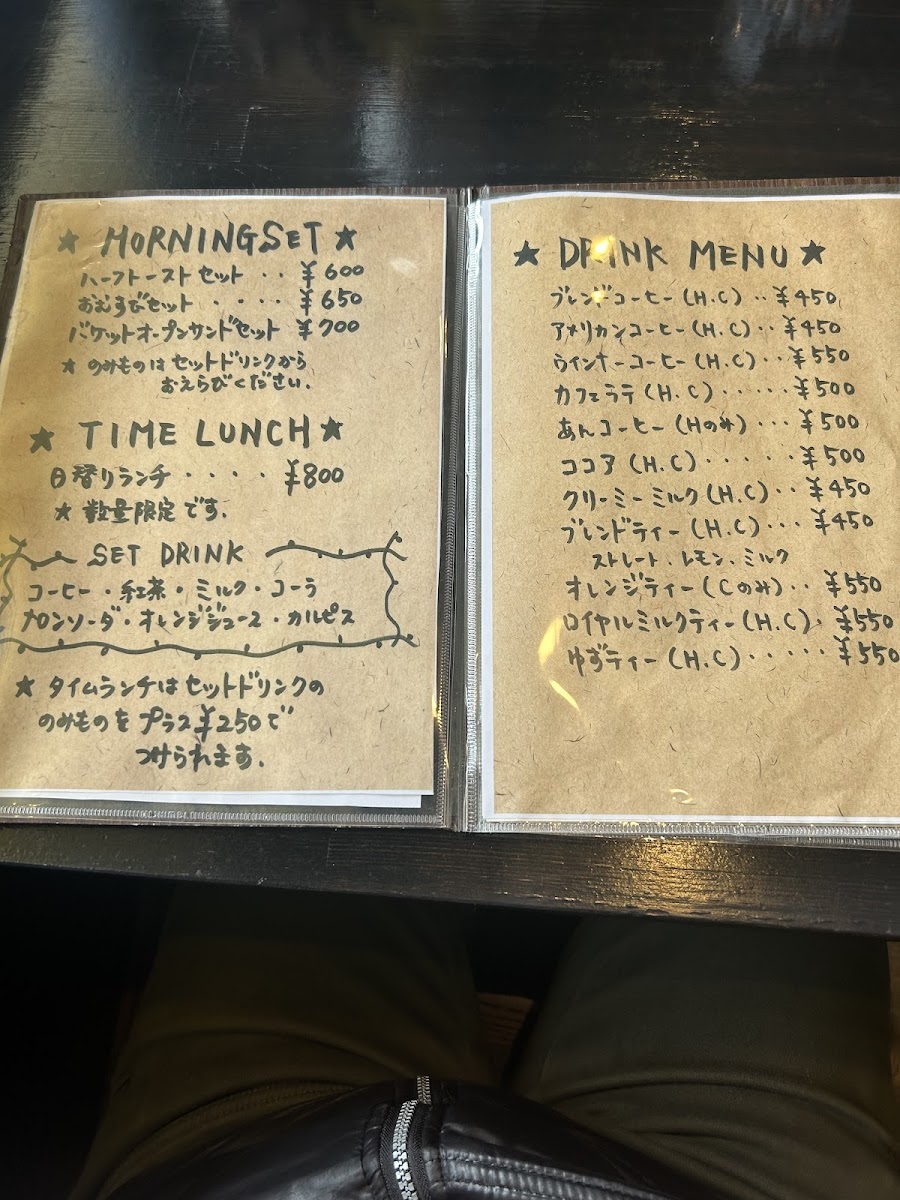 ★ MORNINGSET ★
ハーフトーストセット ・・ ¥600
おむすびセット ・・・・ ¥650
バケットオープンサンドセット ¥700
★ のみものはセットドリンクから
おえらびください.
★ TIME LUNCH ★
日替りランチ ・・・・ ¥800
★ 数量限定です.
SET DRINK
コーヒー・紅茶・ミルク・コーラ
メロンソーダ・オレンジジュース・カルピス
★ タイムランチはセットドリンクの
のみものをプラス¥250で
つけられます.
★ DRINK MENU ★
ブレンドコーヒー(H.C)・・¥450
アメリカンコーヒー(H.C)・・¥450
ウインナーコーヒー(H.C)・・¥550
カフェラテ(H.C)・・・・・¥500
あんコーヒー(Hのみ)・・・¥500
ココア(H.C)・・・・・¥500
クリーミーミルク(H.C)・・¥450
ブレンドティー(H.C)・・・¥450
ストレート.レモン.ミルク
オレンジティー(Cのみ)・・¥550
ロイヤルミルクティー(H.C)・¥550
ゆずティー(H.C)・・・・・¥550